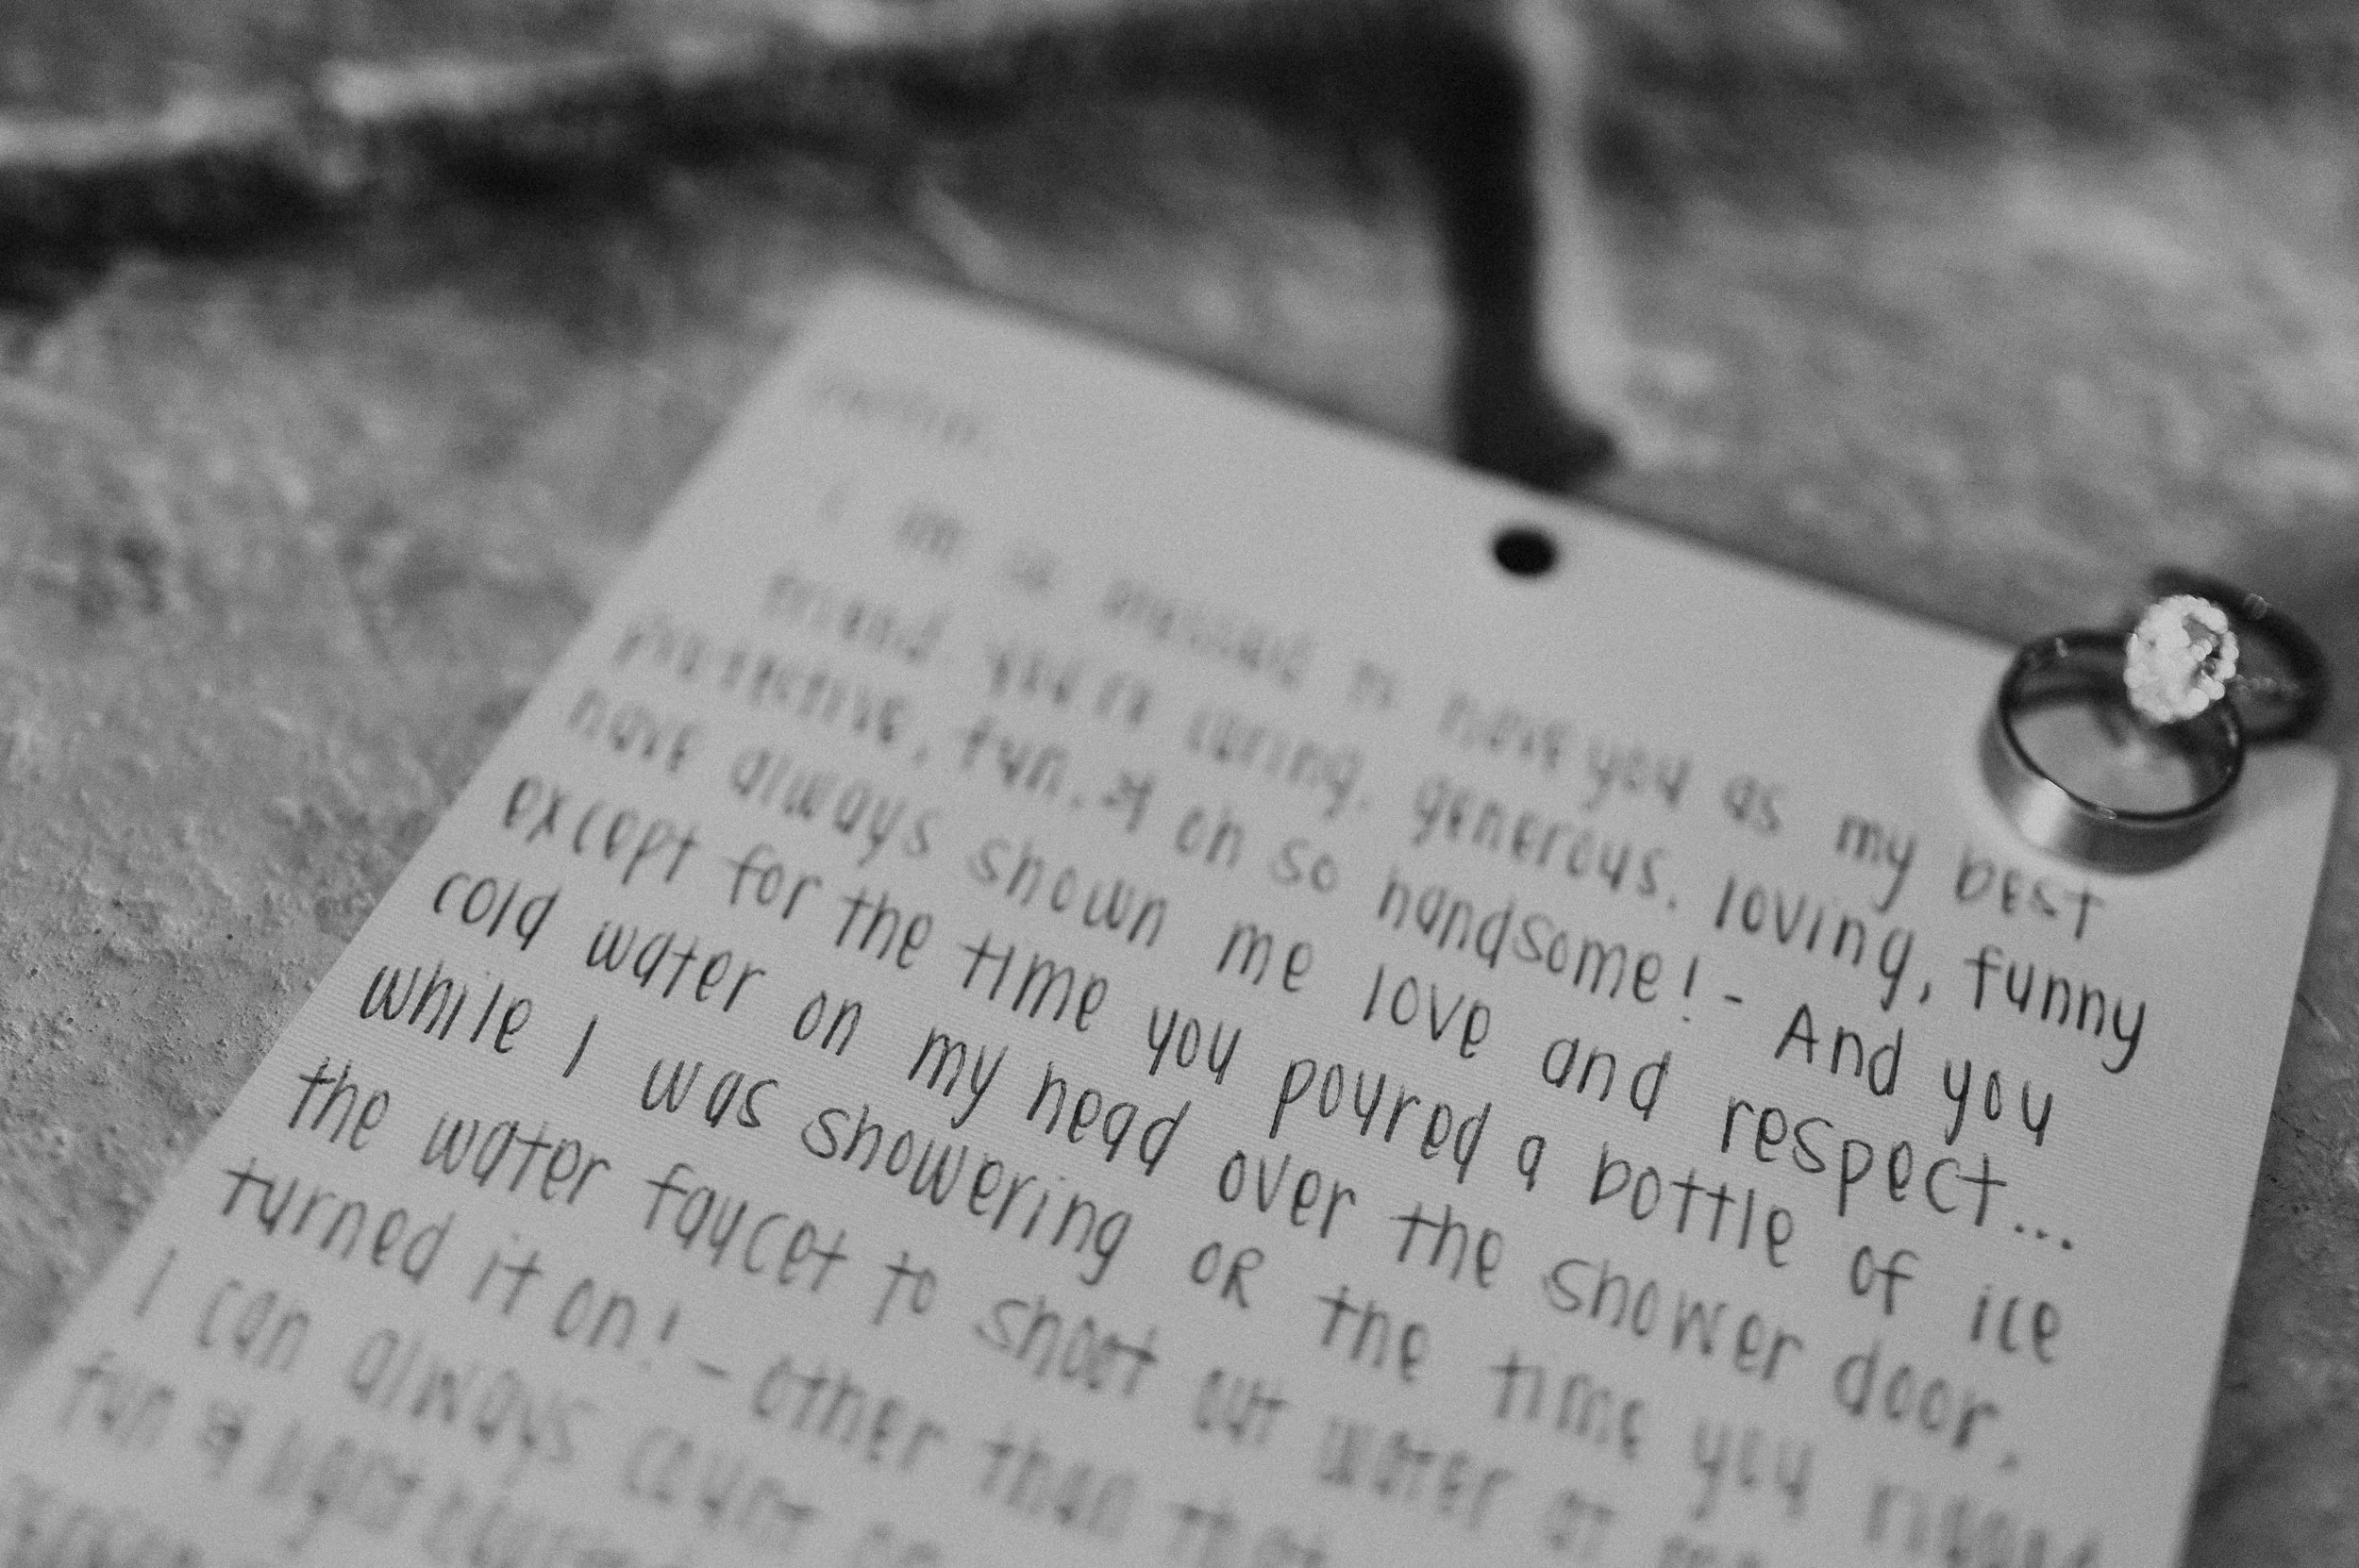 I am so blessed to have you as my best
friend. You're caring, generous, loving, funny
protective, fun, & oh so handsome! - And you
have always shown me love and respect...
except for the time you poured a bottle of ice
cold water on my head over the shower door,
while I was showering OR the time you rigged
the water faucet to shoot out water at
turned it on! - Other than that
I can always count on
fun &